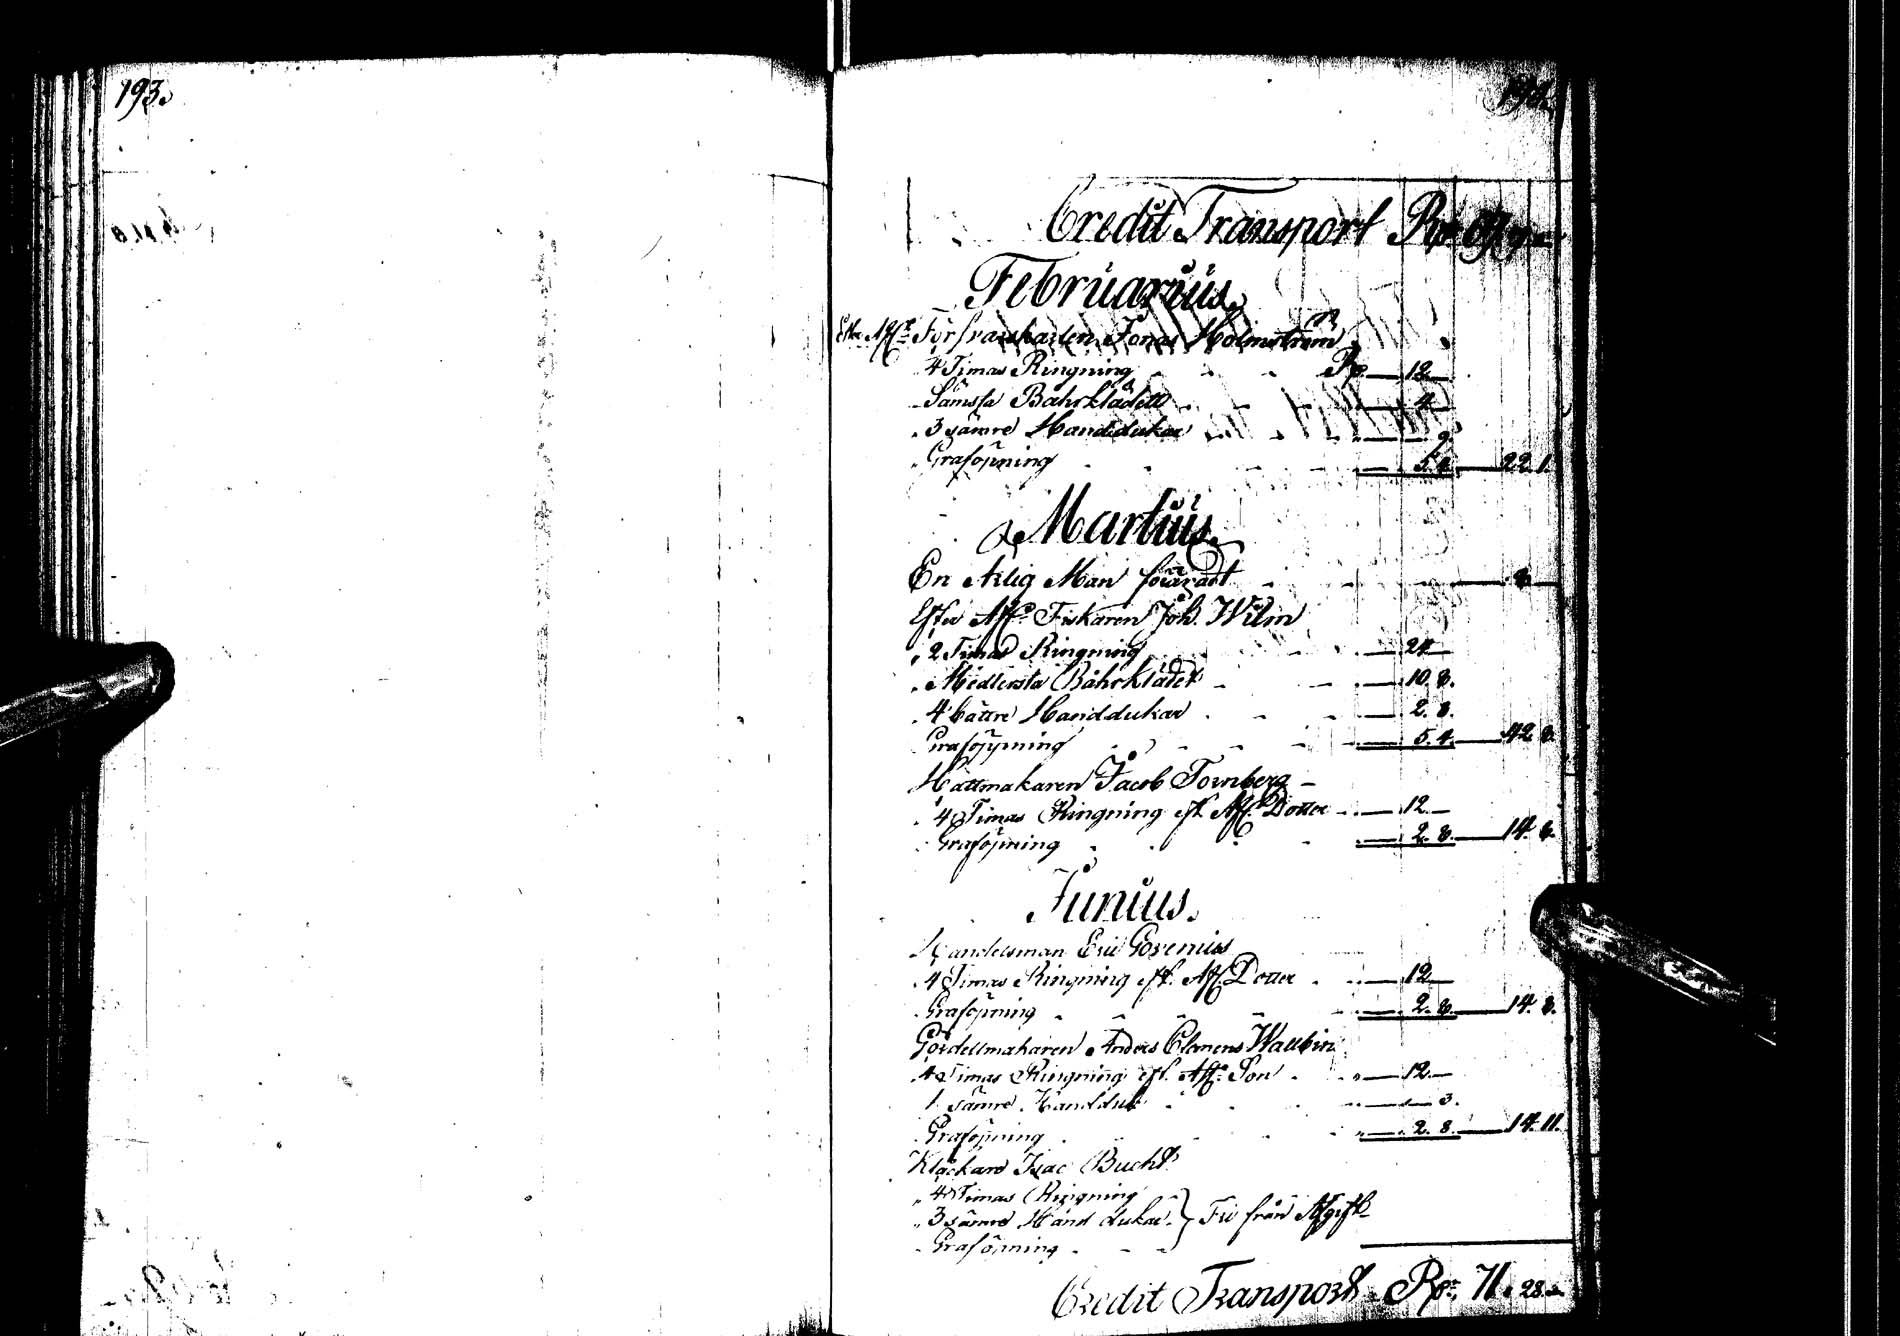 193.
194.
Credit Transport Rd
Februarius.
Eftr. Afl: Försvarskarlen Jonas Holmström
4 Timas Ringning Rd 12
Sämsta Båhrklädett 4
3 sämre Handdukar 9
Graföpning 5. 4 22. 1.
Martius.
En Ärlig Man föräradt 8
Efter Afl: Fiskaren Joh. Wilm
2 Timas Ringning 24
Medlersta Båhrklädet 10. 8.
4 bättre Handdukar 2. 8.
Graföpning 5. 4. 42. 8.
Hattmakaren Jacob Tornberg
4 Timas Ringning eft. Afl: Dotter 12
Graföpning 2. 8. 14. 8.
Junius.
Handelsman Eric
4 Timas Ringning eft. Afl. Dotter 12
Graföpning 2. 8. 14. 8.
Gördellmakaren Anders Clemens Wallbin
4 Timas Ringning eft. Afl: Son 12
1 sämre Handduk 3.
Graföpning 2. 8. 14. 11.
Kläckare Isac Bucht
4 Timas Ringning
3 sämre Hand dukar. } Fri från Afgift
Graföpning
Credit Transport Rd 71. 28.